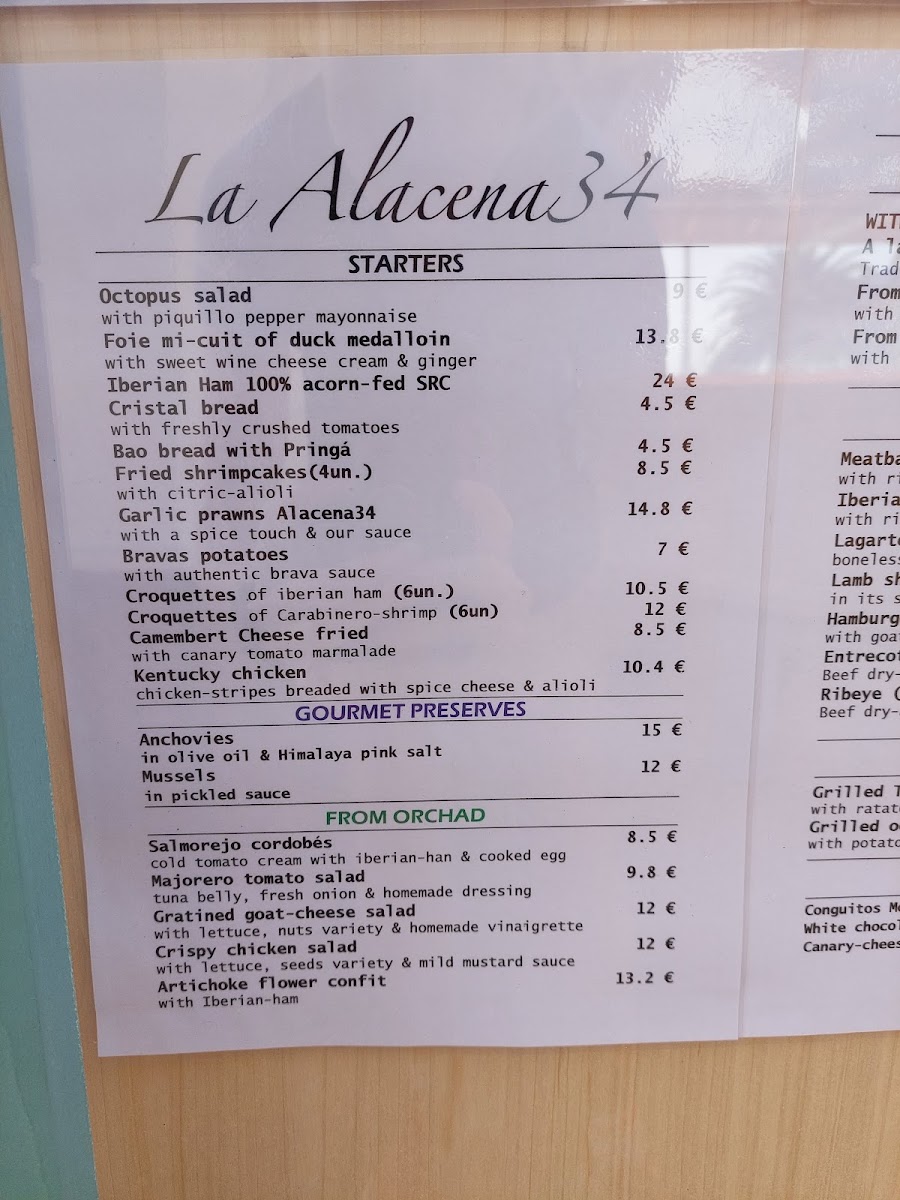 La Alacena34
STARTERS
Octopus salad 9 €
with piquillo pepper mayonnaise
Foie mi-cuit of duck medalloin 13.8 €
with sweet wine cheese cream & ginger
Iberian Ham 100% acorn-fed SRC 24 €
Cristal bread 4.5 €
with freshly crushed tomatoes
Bao bread with Pringá 4.5 €
Fried shrimpcakes(4un.) 8.5 €
with citric-alioli
Garlic prawns Alacena34 14.8 €
with a spice touch & our sauce
Bravas potatoes 7 €
with authentic brava sauce
Croquettes of iberian ham (6un.) 10.5 €
Croquettes of Carabinero-shrimp (6un) 12 €
Camembert Cheese fried 8.5 €
with canary tomato marmalade
Kentucky chicken 10.4 €
chicken-stripes breaded with spice cheese & alioli
GOURMET PRESERVES
Anchovies 15 €
in olive oil & Himalaya pink salt
Mussels 12 €
in pickled sauce
FROM ORCHAD
Salmorejo cordobés 8.5 €
cold tomato cream with iberian-han & cooked egg
Majorero tomato salad 9.8 €
tuna belly, fresh onion & homemade dressing
Gratined goat-cheese salad 12 €
with lettuce, nuts variety & homemade vinaigrette
Crispy chicken salad 12 €
with lettuce, seeds variety & mild mustard sauce
Artichoke flower confit 13.2 €
with Iberian-ham
A
From
with
From
with
with
with
boneless
Lamb
in its
with
Beef dry-
Ribeye (
Beef dry-
Grilled
with
Grilled
with
Conguitos
White